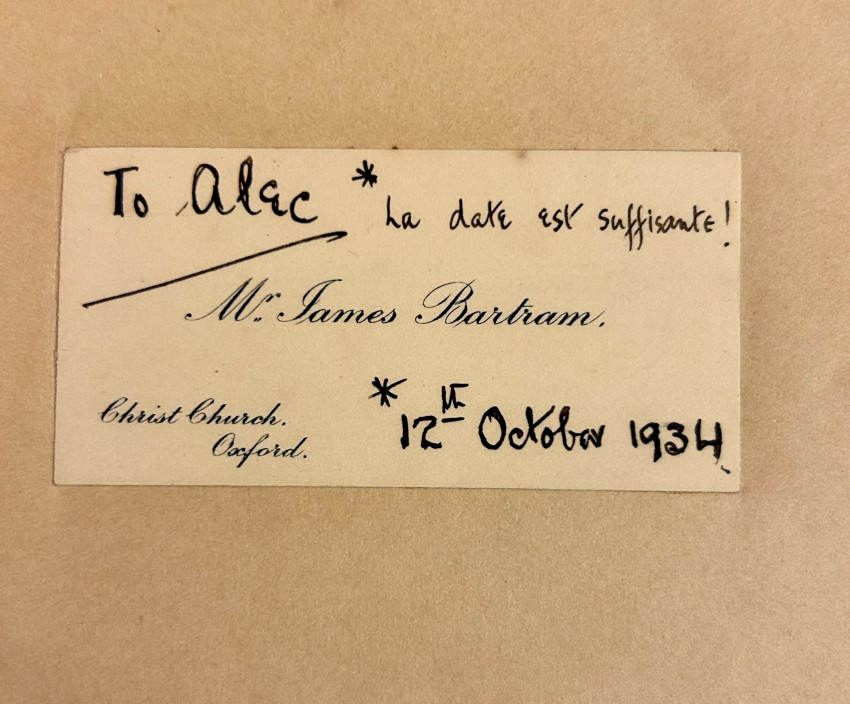 To Alec * La date est suffisante!
Mr. James Bartram.
Christ Church.
Oxford.
* 12th October 1934